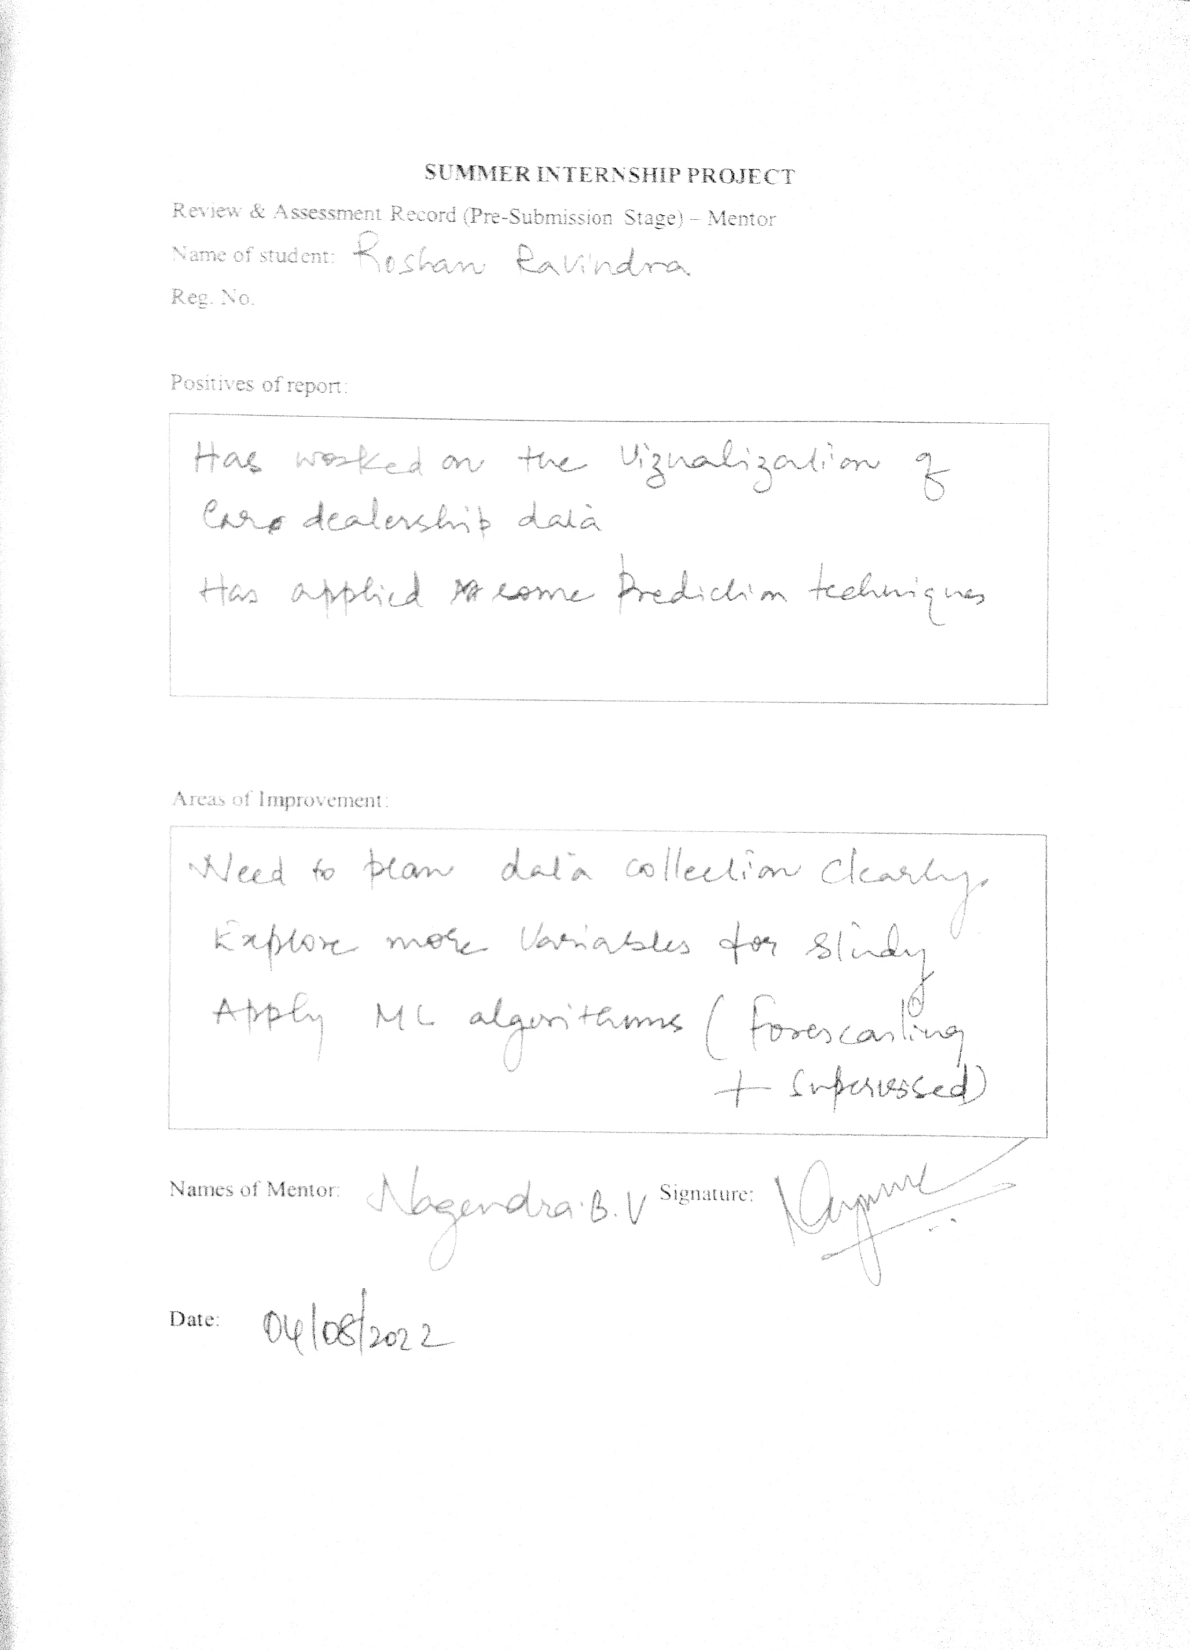 SUMMER INTERNSHIP PROJECT
Review & Assessment Record (Pre-Submission Stage) – Mentor
Name of student: Roshan Ravindra
Reg. No.
Positives of report:
Has worked on the Viznalization of
Car dealership data
Has applied some Prediction techniques
Areas of Improvement:
Need to plan data collection clearly.
Explore more Variables for study
Apply ML algorithms ( Forescasting
+ Supervised)
Names of Mentor: Nagendra. B. V Signature:
Date: 04/08/2022